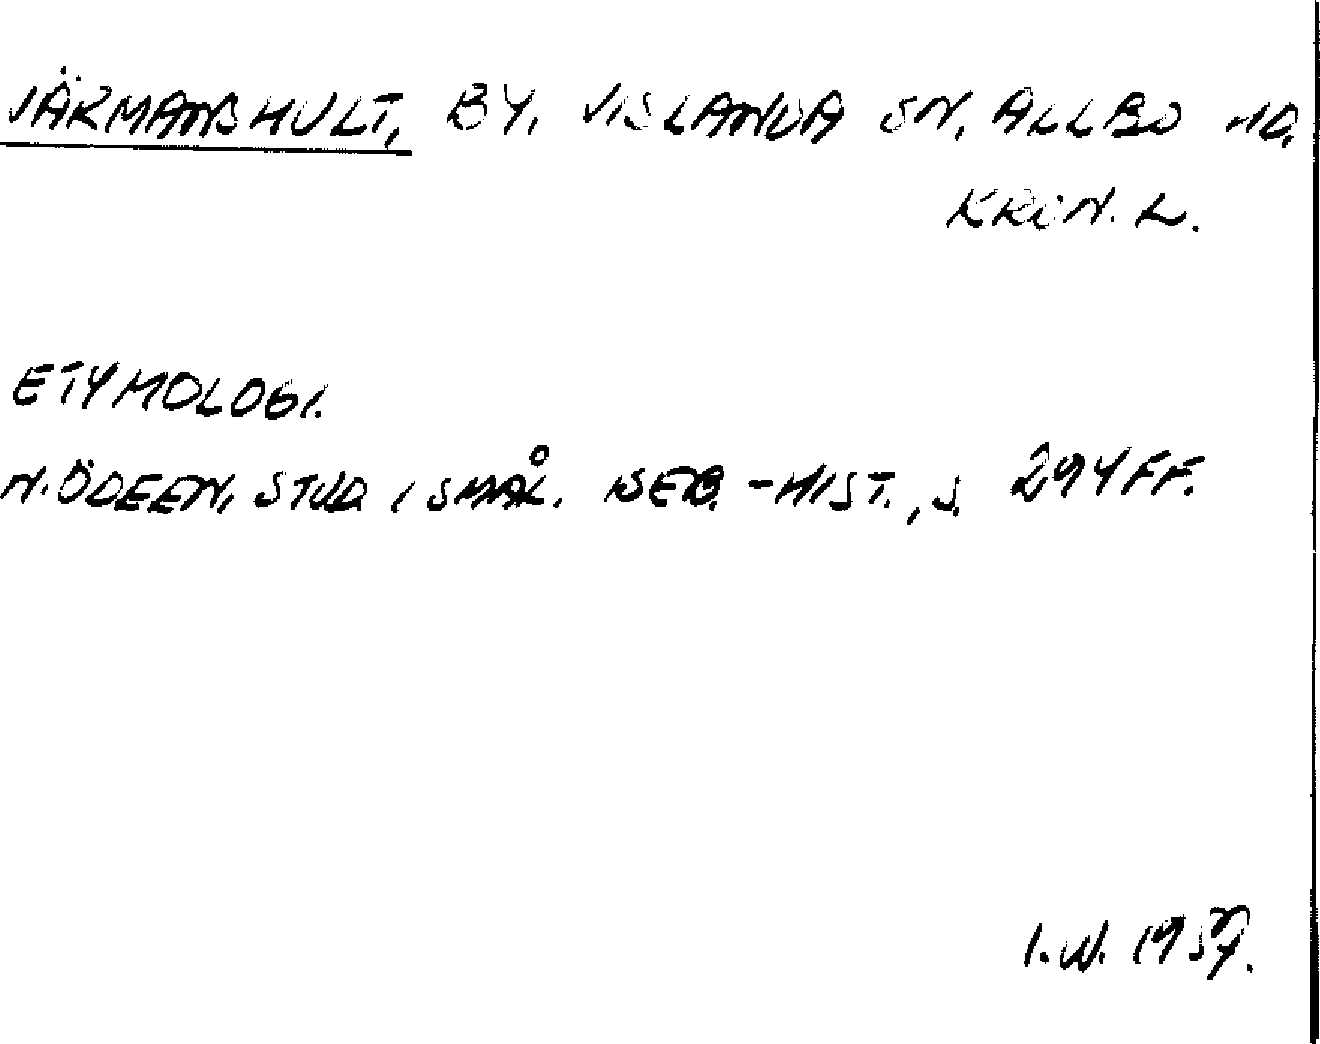 JÄRMANSHULT, BY, VISLANDA SN, ALLBO HD,
KRON. L.
ETYMOLOGI.
N. ÖDEEN, STUD. I SMÅL. BEB.-HIST., S. 294 FF.
I.W. 1957.